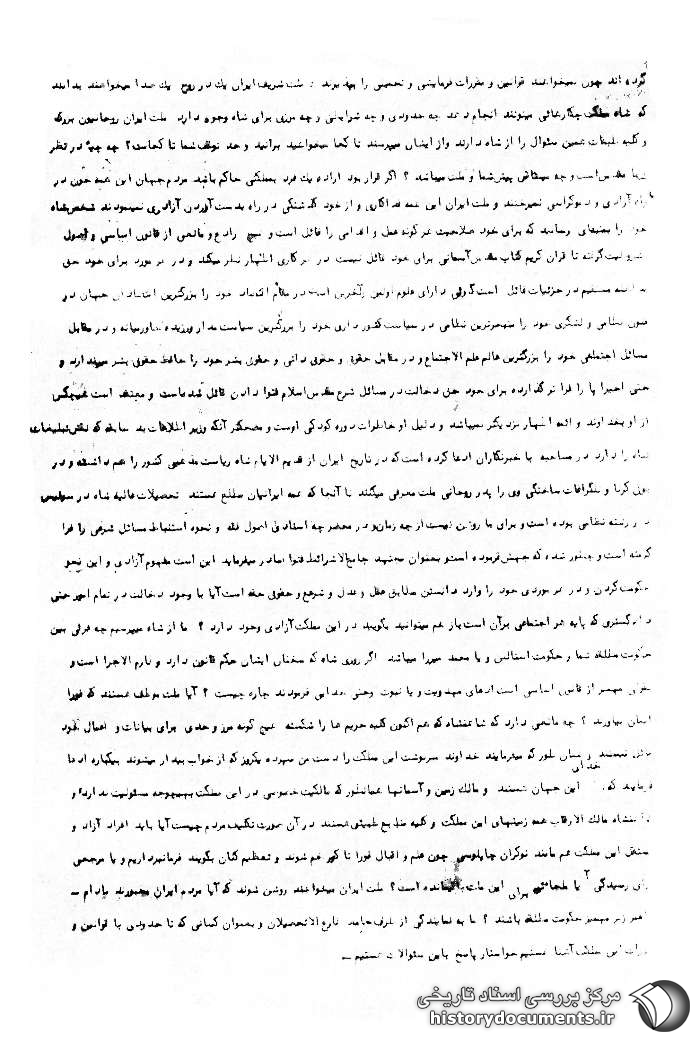 کرده اند چون نمیخواهند قوانین و مقررات فرمایشی و تحمیلی را بپذیرند : ملت شریف ایران یک دل و روح یک صدا میخواهند بدانند
که شاه مملکت چکارهائی میتوانند انجام دهد چه حدودی و چه شرایطی و چه مرزی برای شاه وجود دارد ملت ایران روحانیون بزرگ
و کلیه طبقات همین سئوال را از شاه دارند و از ایشان میپرسند تا کجا میخواهید برانید و حد توقف شما تا کجاست؟ چه چیز در نظر
شما مقدس است و چه میثاقی پیش شما و ملت میباشد ؟ اگر قرار بود اراده یک فرد بمملکتی حاکم باشد مردم جهان این همه خون در
راه آزادی و دموکراسی نمیریختند و ملت ایران این همه فداکاری و از خود گذشتگی در راه بدست آوردن آزادی نمینمودند شخص شاه
خود را بجائی رسانید که برای خود صلاحیت هر گونه عمل و اقدامی را قائل است و هیچ رادع و مانعی از قانون اساسی و اصول
مشروطیت گرفته تا قران کریم کتاب مقدس آسمانی برای خود قائل نیست در هر کاری اظهار نظر میکند و در هر مورد برای خود حق
مداخله مستقیم در جزئیات قائل است گوئی دارای علوم اولین و آخرین است در مقام اقتصاد خود را بزرگترین اقتصاددان جهان در
فنون نظامی و لشگری خود را متبحرترین نظامی در سیاست کشور داری خود را بزرگترین سیاست مدار ورزیده خاورمیانه و در مقابل
مسائل اجتماعی خود را بزرگترین عالم علم الاجتماع و در مقابل حقوق و حقوق دانی و حقوق بشر خود را حافظ حقوق بشر میپندارد و
حتی اخیرا پا را فرا تر گذارده برای خود حق دخالت در مسائل شرع مقدس اسلام فتوا دادن قائل شده است و معتقد است هیچکس
از او بخداوند و ائمه اطهار نزدیکتر نمیباشد و دلیل او خاطرات دوره کودکی اوست و مضحکتر آنکه وزیر اطلاعات بد سابقه که نقش تبلیغات
شاه را دارد در مصاحبه با خبرنگاران ادعا کرده است که در تاریخ ایران از قدیم الایام شاه ریاست مذهبی کشور را هم داشته و در
بوق کرنا و تلگرافات ساختگی وی را پدر روحانی ملت معرفی میکنند تا آنجا که همه ایرانیان مطلع هستند تحصیلات عالیه شاه در سوئیس
در رشته نظامی بوده است و برای ما روشن نیست از چه زمان و در محضر چه استادی اصول فقه و نحوه استنباط مسائل شرعی را فرا
گرفته است و چطور شده که جهش فرموده است و بعنوان مجتهد جامع الشرائط فتوا صادر میفرماید این است مفهوم آزادی و این نحو
حکومت کردن و در هر موردی خود را وارد دانستن مطابق عقل و عدل و شرع و حقوق حقه است آیا با وجود دخالت در تمام امور حتی
دادگستری که پایه هر اجتماعی بر آن است باز هم میتوانید بگویید در این مملکت آزادی وجود دارد ؟ ما از شاه میپرسیم چه فرقی بین
حکومت مطلقه شما و حکومت استالین و یا محمد میرزا میباشد اگر روزی شاه که سخنان ایشان حکم قانون دارد و لازم الاجرا است و
حقوقی مهمتر از قانون اساسی است ادعای مهدویت و یا نبوت وحتی خدایی فرمودند چاره چیست ؟ آیا ملت موظف هستند که فورا
ایمان بیاورند ؟ چه مانعی دارد که شاهنشاه که هم اکنون کلیه حریم ها را شکسته هیچ گونه مرز و حدی برای بیانات و اعمال خود
قائل نیستند و همان طور که میفرمایند خداوند سرنوشت این مملکت را دست من سپرده یکروز که از خواب بیدار میشوند بیکباره ادعا
فرمایند که خدای این جهان هستند و مالک زمین و آسمانها همانطور که مالکیت خصوصی در این مملکت بهیچوجه مسئولیت ندارد و
شاهنشاه مالک الرقاب همه زمینهای این مملکت و کلیه منابع طبیعی هستند در آن صورت تکلیف مردم چیست آیا باید افراد آزاد و
مستقل این مملکت هم مانند نوکران چاپلوس چون علم و اقبال فورا تا کمر خم شوند و تعظیم کنان بگویند فرمانبرداریم و یا مرجعی
برای رسیدگی یا ملجائی برای این ملت باقیمانده است؟ ملت ایران میخواهند روشن شوند که آیا مردم ایران مجبورند مادام —
العمر زیر مهمیز حکومت مطلقه باشند ؟ ما به نمایندگی از طرف جامعه فارغ التحصیلان و بعنوان کسانی که تا حدودی با قوانین و
مقررات این مملکت آشنا هستیم خواستار پاسخ باین سئوالات هستیم —
مرکز بررسی اسناد تاریخی
historydocuments.ir